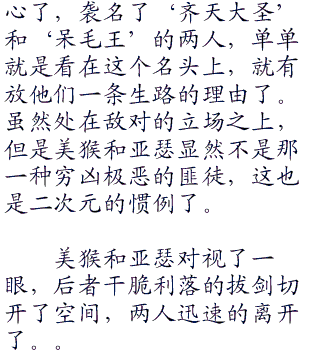 心了，袭名了‘齐天大圣’
和‘呆毛王’的两人，单单
就是看在这个名头上，就有
放他们一条生路的理由了。
虽然处在敌对的立场之上，
但是美猴和亚瑟显然不是那
一种穷凶极恶的匪徒，这也
是二次元的惯例了。
美猴和亚瑟对视了一
眼，后者干脆利落的拔剑切
开了空间，两人迅速的离开
了。。